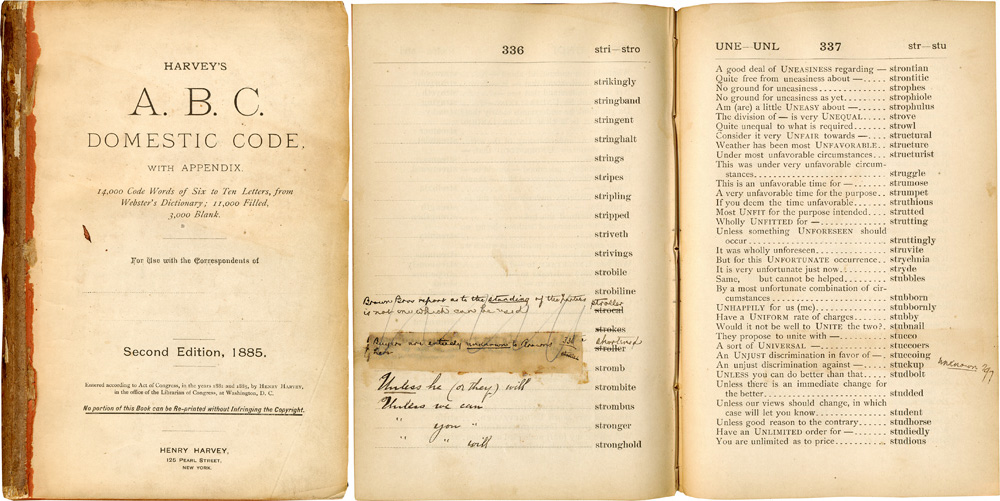 HARVEY'S
A. B. C.
DOMESTIC CODE,
WITH APPENDIX.
14,000 Code Words of Six to Ten Letters, from
Webster's Dictionary; 11,000 Filled,
3,000 Blank.
For Use with the Correspondents of
Second Edition, 1885.
Entered according to Act of Congress, in the years 1881 and 1885, by HENRY HARVEY,
in the office of the Librarian of Congress, at Washington, D. C.
No portion of this Book can be Re-printed without Infringing the Copyright.
HENRY HARVEY,
125 PEARL STREET,
NEW YORK.
336 stri—stro
strikingly
stringband
stringent
stringhalt
strings
stripes
stripling
stripped
striveth
strivings
strobile
strobiline
Brown Bros report as to the standing of the parties stroller
is not one which can be used strocal
strokes
Buyers are entirely unknown to Brown
stroller
stromb
Unless he (or they) will strombite
Unless we can strombus
" you " stronger
" " will stronghold
UNE—UNL 337 str—stu
A good deal of UNEASINESS regarding — strontian
Quite free from uneasiness about —..... strontitic
No ground for uneasiness.............. strophes
No ground for uneasiness as yet......... strophiole
Am (are) a little UNEASY about —...... strophulus
The division of — is very UNEQUAL..... strove
Quite unequal to what is required....... strowl
Consider it very UNFAIR towards —.... structural
Weather has been most UNFAVORABLE.. structure
Under most unfavorable circumstances... structurist
This was under very unfavorable circum-
stances........................... struggle
This is an unfavorable time for —....... strumose
A very unfavorable time for the purpose.. strumpet
If you deem the time unfavorable....... struthious
Most UNFIT for the purpose intended.... strutted
Wholly UNFITTED for —.............. strutting
Unless something UNFORESEEN should
occur............................ struttingly
It was wholly unforeseen.............. struvite
But for this UNFORTUNATE occurrence.. strychnia
It is very unfortunate just now.......... stryde
Same, but cannot be helped........ stubbles
By a most unfortunate combination of cir-
cumstances....................... stubborn
UNHAPPILY for us (me)............... stubbornly
Have a UNIFORM rate of charges....... stubby
Would it not be well to UNITE the two?. stubnail
They propose to unite with —.......... stucco
A sort of UNIVERSAL —.............. stuccoers
An UNJUST discrimination in favor of —. stuccoing
An unjust discrimination against —..... stuckup
UNLESS you can do better than that..... studbolt
Unless there is an immediate change for
the better........................ studded
Unless our views should change, in which
case will let you know.............. student
Unless good reason to the contrary...... studhorse
Have an UNLIMITED order for —....... studiedly
You are unlimited as to price........... studious
unknown